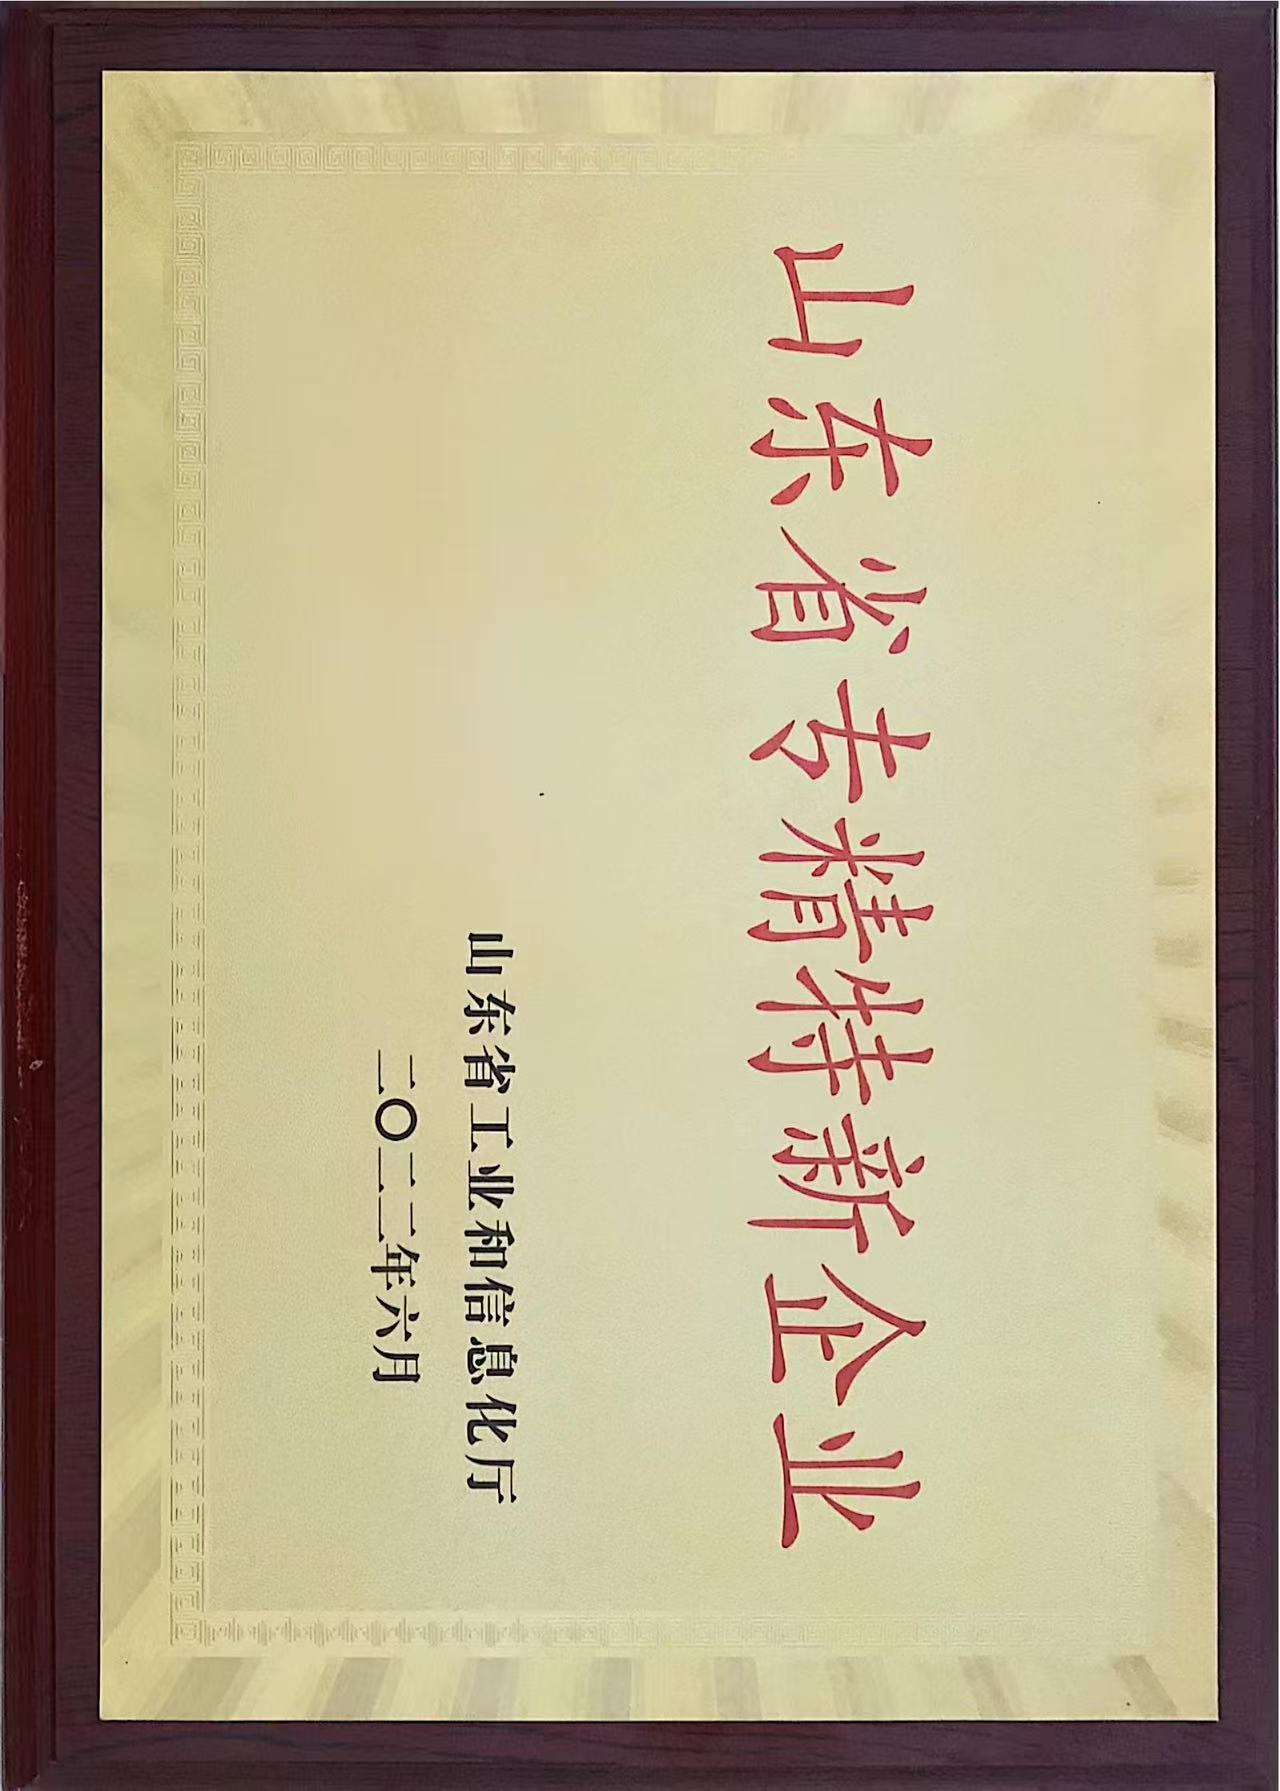 山东省专精特新企业
山东省工业和信息化厅
二〇二二年六月